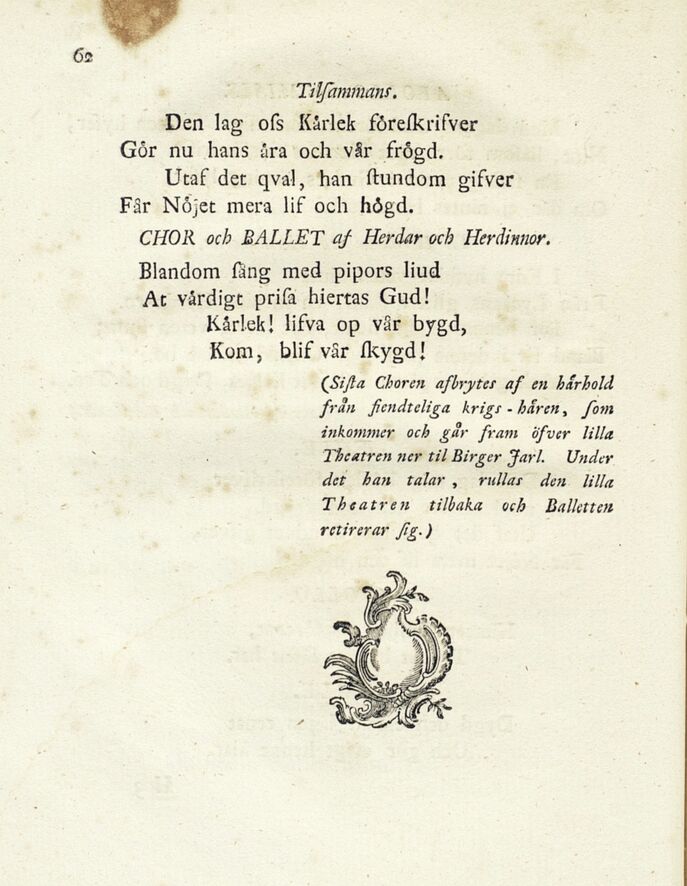 62
Tilſammans.
Den lag oſs Kårlek föreſkrifver
Gör nu hans åra och vår frögd.
Utaf det qval, han ſtundom gifver
Får Nöjet mera lif och högd.
CHOR och BALLET af Herdar och Herdinnor.
Blandom ſång med pipors liud
At vårdigt priſa hiertas Gud!
Kårlek! lifva op vår bygd,
Kom, blif vår ſkygd!
(Siſta Choren afbrytes af en hårhold
från fiendteliga krigs-håren, ſom
inkommer och går fram öfver lilla
Theatren ner til Birger Jarl. Under
det han talar, rullas den lilla
Theatren tilbaka och Balletten
retirerar ſig.)